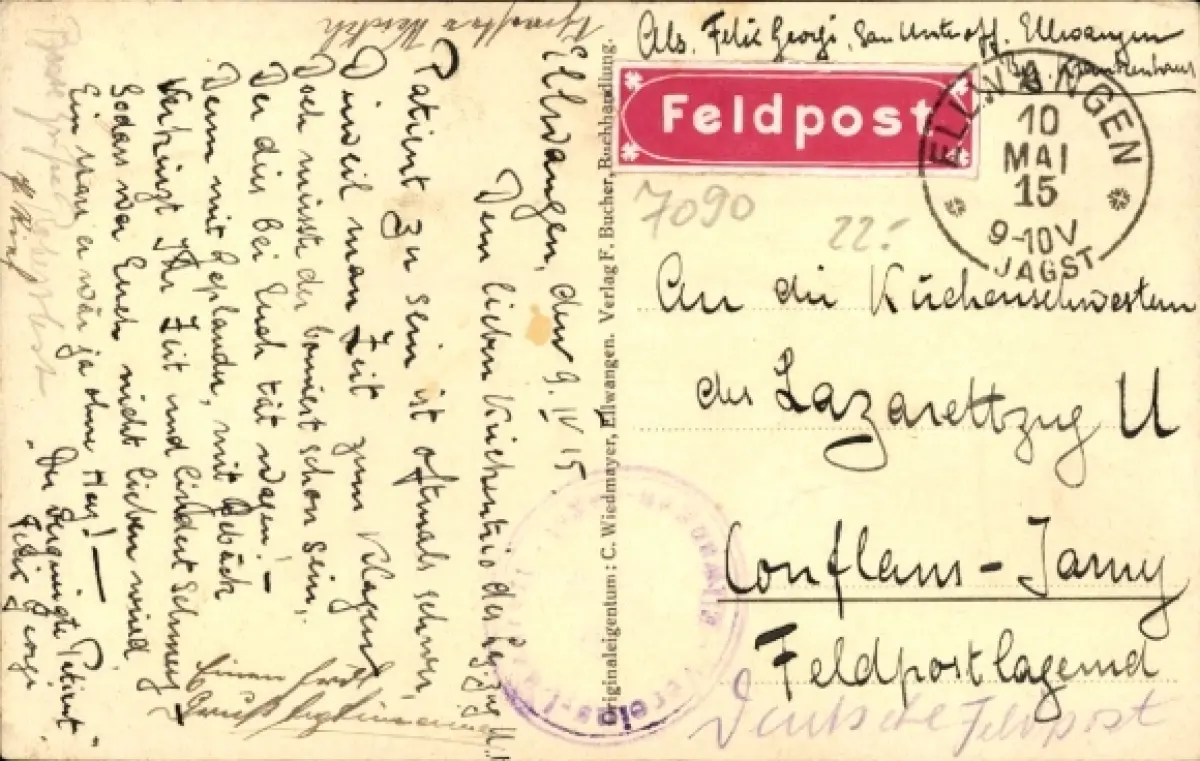 Abs. Felix Georgi, San Unteroff. Ellwangen
Krankenhaus
Feldpost
ELLWANGEN
10
MAI
15
9-10V
JAGST
7090
22.-
An die Küchenschwestern
der Lazarettzug U
Conflans-Jarny
Feldpostlagernd
Deutsche Feldpost
Originaleigentum: C. Wiedmayer, Ellwangen. Verlag F. Bucher, Buchhandlung.
Ellwangen, den 9. IV 15.
Dem lieben Küchentrio des Lazzug U.!
Patient zu sein ist oftmals schwer,
Dieweil man Zeit zum Klagen
Doch müsste der borniert schon sein,
Der dies bei Euch tät wagen! -
Denn mit Geplauder, mit Gebäck
Verkürzt Ihr Zeit und lindert Schmerz -
Sodass wer Euch nicht lieben würd
Ein Mann er wär ja ohne Herz! -
"Der vergnügte Patient"
Felix Georgi
Einen
Gruß
Vereins-